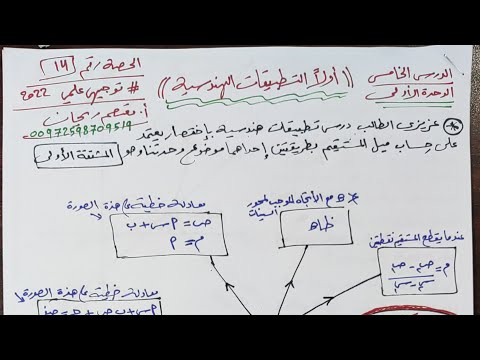 الحصة رقم ١٤
# توجيهي علمي 2022
أ. معتصم ريحان
00972598709519
الدرس الخامس
الوحدة الأولى
((أولاً التطبيقات الهندسية))
عزيزي الطالب درس تطبيقات هندسية بإختصار يعتمد
على حساب ميل المستقيم بطريقتين إحداهما موضوع وحدتنا وهو المشتقة الأولى
معادلة خطية على هذه الصورة
ص = م س + ب
م = م
مع الاتجاه الموجب لمحور السينات
ظاهـ
عندما يقطع المستقيم نقطتين
م = ص٢ - ص١ / س٢ - س١
معادلة خطية على هذه الصورة